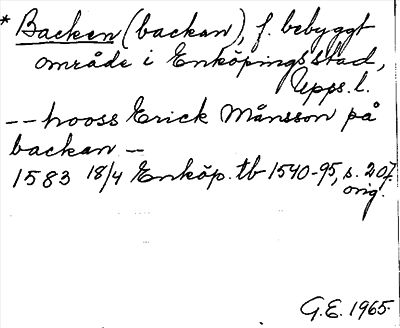 * Backen (backan), f. bebyggt
område i Enköpings stad,
Upps. l.
-- hooss Erick Månsson på
backan –
1583 18/4 Enköp. tb 1540-95, s. 207.
orig.
G.E. 1965.